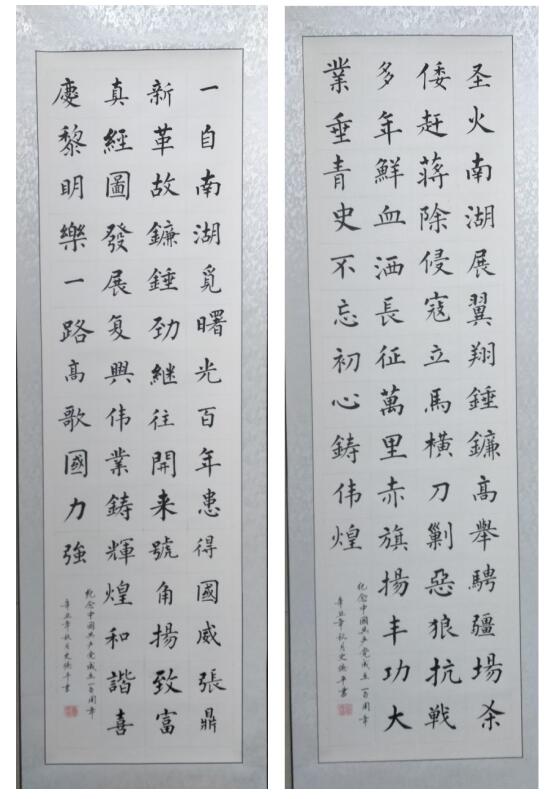 圣火南湖展翼翔錘鐮高舉騁疆場杀
倭赶蔣除侵寇立馬橫刀剿惡狼抗戦
多年鮮血洒長征萬里赤旗揚丰功大
業垂青史不忘初心鑄伟煌
纪念中國共产党成立一百周年
辛丑年秋月史平書
一自南湖覓曙光百年患得國威張鼎
新革故鐮錘劲继往開来號角揚致富
真經圖發展复興伟業鑄輝煌和諧喜
慶黎明樂一路高歌國力強
纪念中國共产党成立一百周年
辛丑年秋月史平書